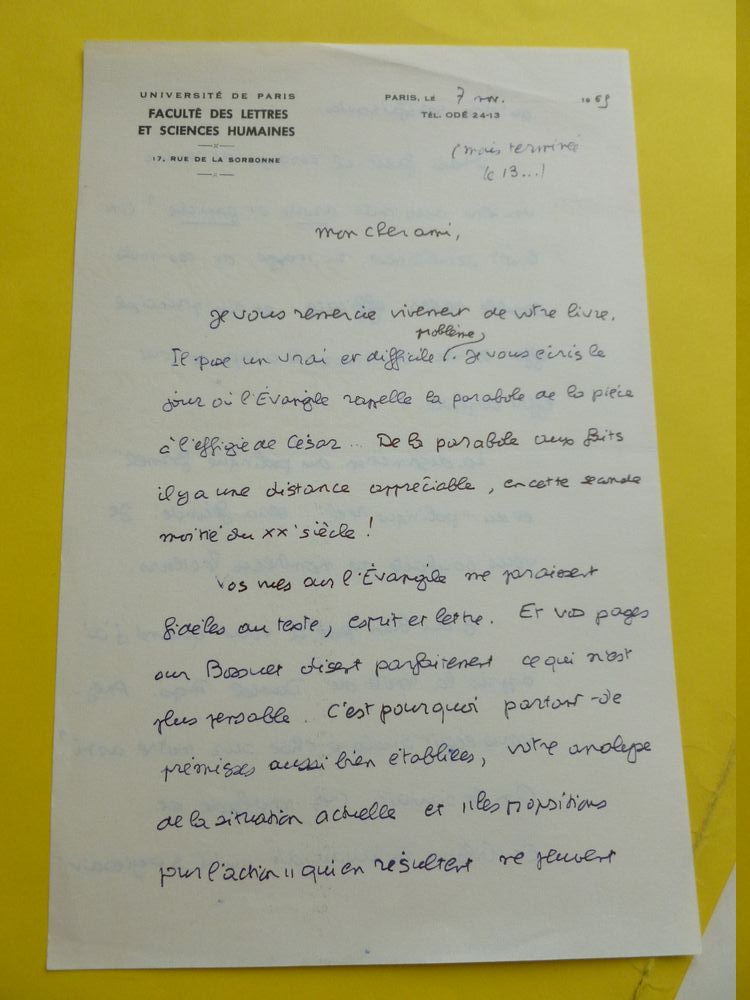 UNIVERSITÉ DE PARIS
FACULTÉ DES LETTRES
ET SCIENCES HUMAINES
17, RUE DE LA SORBONNE
PARIS, LE 7 nov. 1969
TÉL. ODÉ 24-13
(mais terminée
le 13...)
mon cher ami,
Je vous remercie vivement de votre livre.
Il pose un vrai et difficile problème. Je vous écris le
jour où l'Évangile rappelle la parabole de la pièce
à l'effigie de César... De la parabole aux faits
il y a une distance appréciable, en cette seconde
moitié du XXe siècle !
Vos vues sur l'Évangile me paraissent
fidèles au texte, esprit et lettre. Et vos pages
sur Bossuet disent parfaitement ce qui n'est
plus pensable. C'est pourquoi partant de
prémisses aussi bien établies, votre analyse
de la situation actuelle et "les propositions
pour l'action" qui en résultent ne peuvent